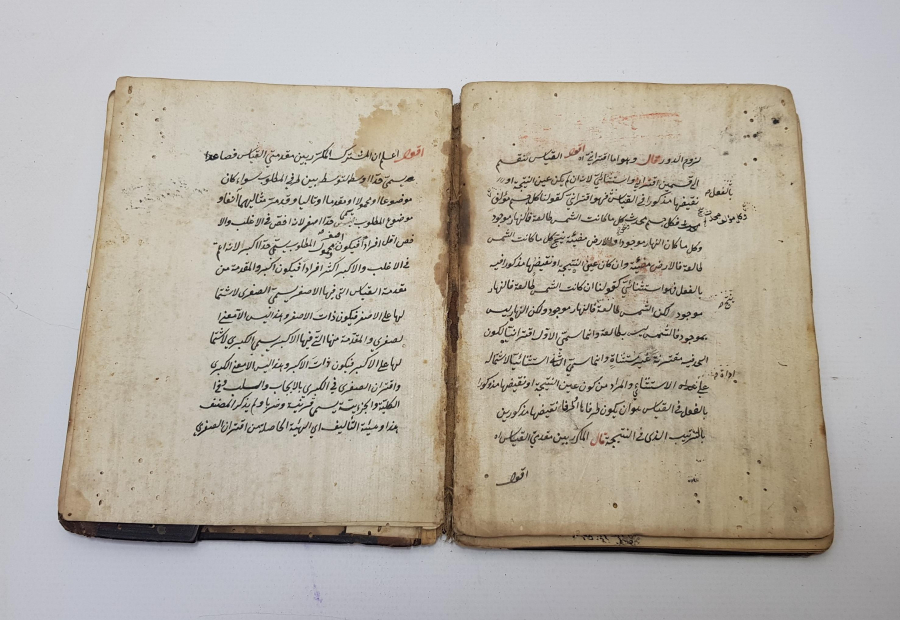 لزوم الدور قال وهو اما اقترانى اه اقول القياس ينقسم
الى قسمين اقترانى واستثنائى لانه ان لم يكن عين النتيجة او
نقيضها مذكورا فى القياس فهو اقترانى كقولنا كل جسم مؤلف
محدث فكل جسم محدث كلما كانت الشمس طالعة فالنهار موجود
وكلما كان النهار موجودا فالارض مضيئة ينتج كلما كانت الشمس
طالعة فالارض مضيئة وان كان عين النتيجة او نقيضها مذكورا فيه
بالفعل فهو استثنائى كقولنا ان كانت الشمس طالعة فالنهار
موجود لكن الشمس طالعة فالنهار موجود ولكن النهار ليس
بموجود فالشمس ليست بطالعة وانما سمى الاول اقترانيا لكون
الحدود فيه مقترنة غير مستثناة وانما سمى الثانى استثنائيا لاشتماله
على الاستثناء والمراد من كون عين النتيجة او نقيضها مذكورا
بالفعل فى القياس هو ان يكون طرفاها او طرفا نقيضها مذكورين
بالترتيب الذى فى النتيجة قال المكرر بين مقدمتى القياس اه
اقول
بالفعل
وكل مؤلف محدث ينتج
ينتج
اداة
اقول اعلم ان المشترك المكرر بين مقدمتى القياس فصاعدا
يسمى حدا اوسط لتوسطه بين طرفى المطلوب سواء كان
موضوعا او محمولا او مقدما او تاليا وقد مر مثالهما آنفا و
موضوع المطلوب يسمى حدا اصغر لانه اخص فى الاغلب والا
خص اقل افرادا فيكون اصغر ومحمول المطلوب يسمى حدا اكبر لانه اعم
فى الاغلب والاكبر اكثر افرادا فيكون اكبر والمقدمة من
مقدمة القياس التى فيها الاصغر يسمى الصغرى لاشتما
لها على الاصغر فيكون ذات الاصغر وهذا ليس الا معنى
الصغرى والمقدمة منها التى فيها الاكبر يسمى الكبرى لاشتما
لها على الاكبر فيكون ذات الاكبر وهذا ليس الا معنى الكبرى
واقتران الصغرى فى الكبرى بالايجاب والسلب وفى
الكلية والجزئية يسمى قرينة وضربا ولم يذكر المصنف
هذا وهيئة التأليف اى الهيئة الحاصلة من اقتران الصغرى